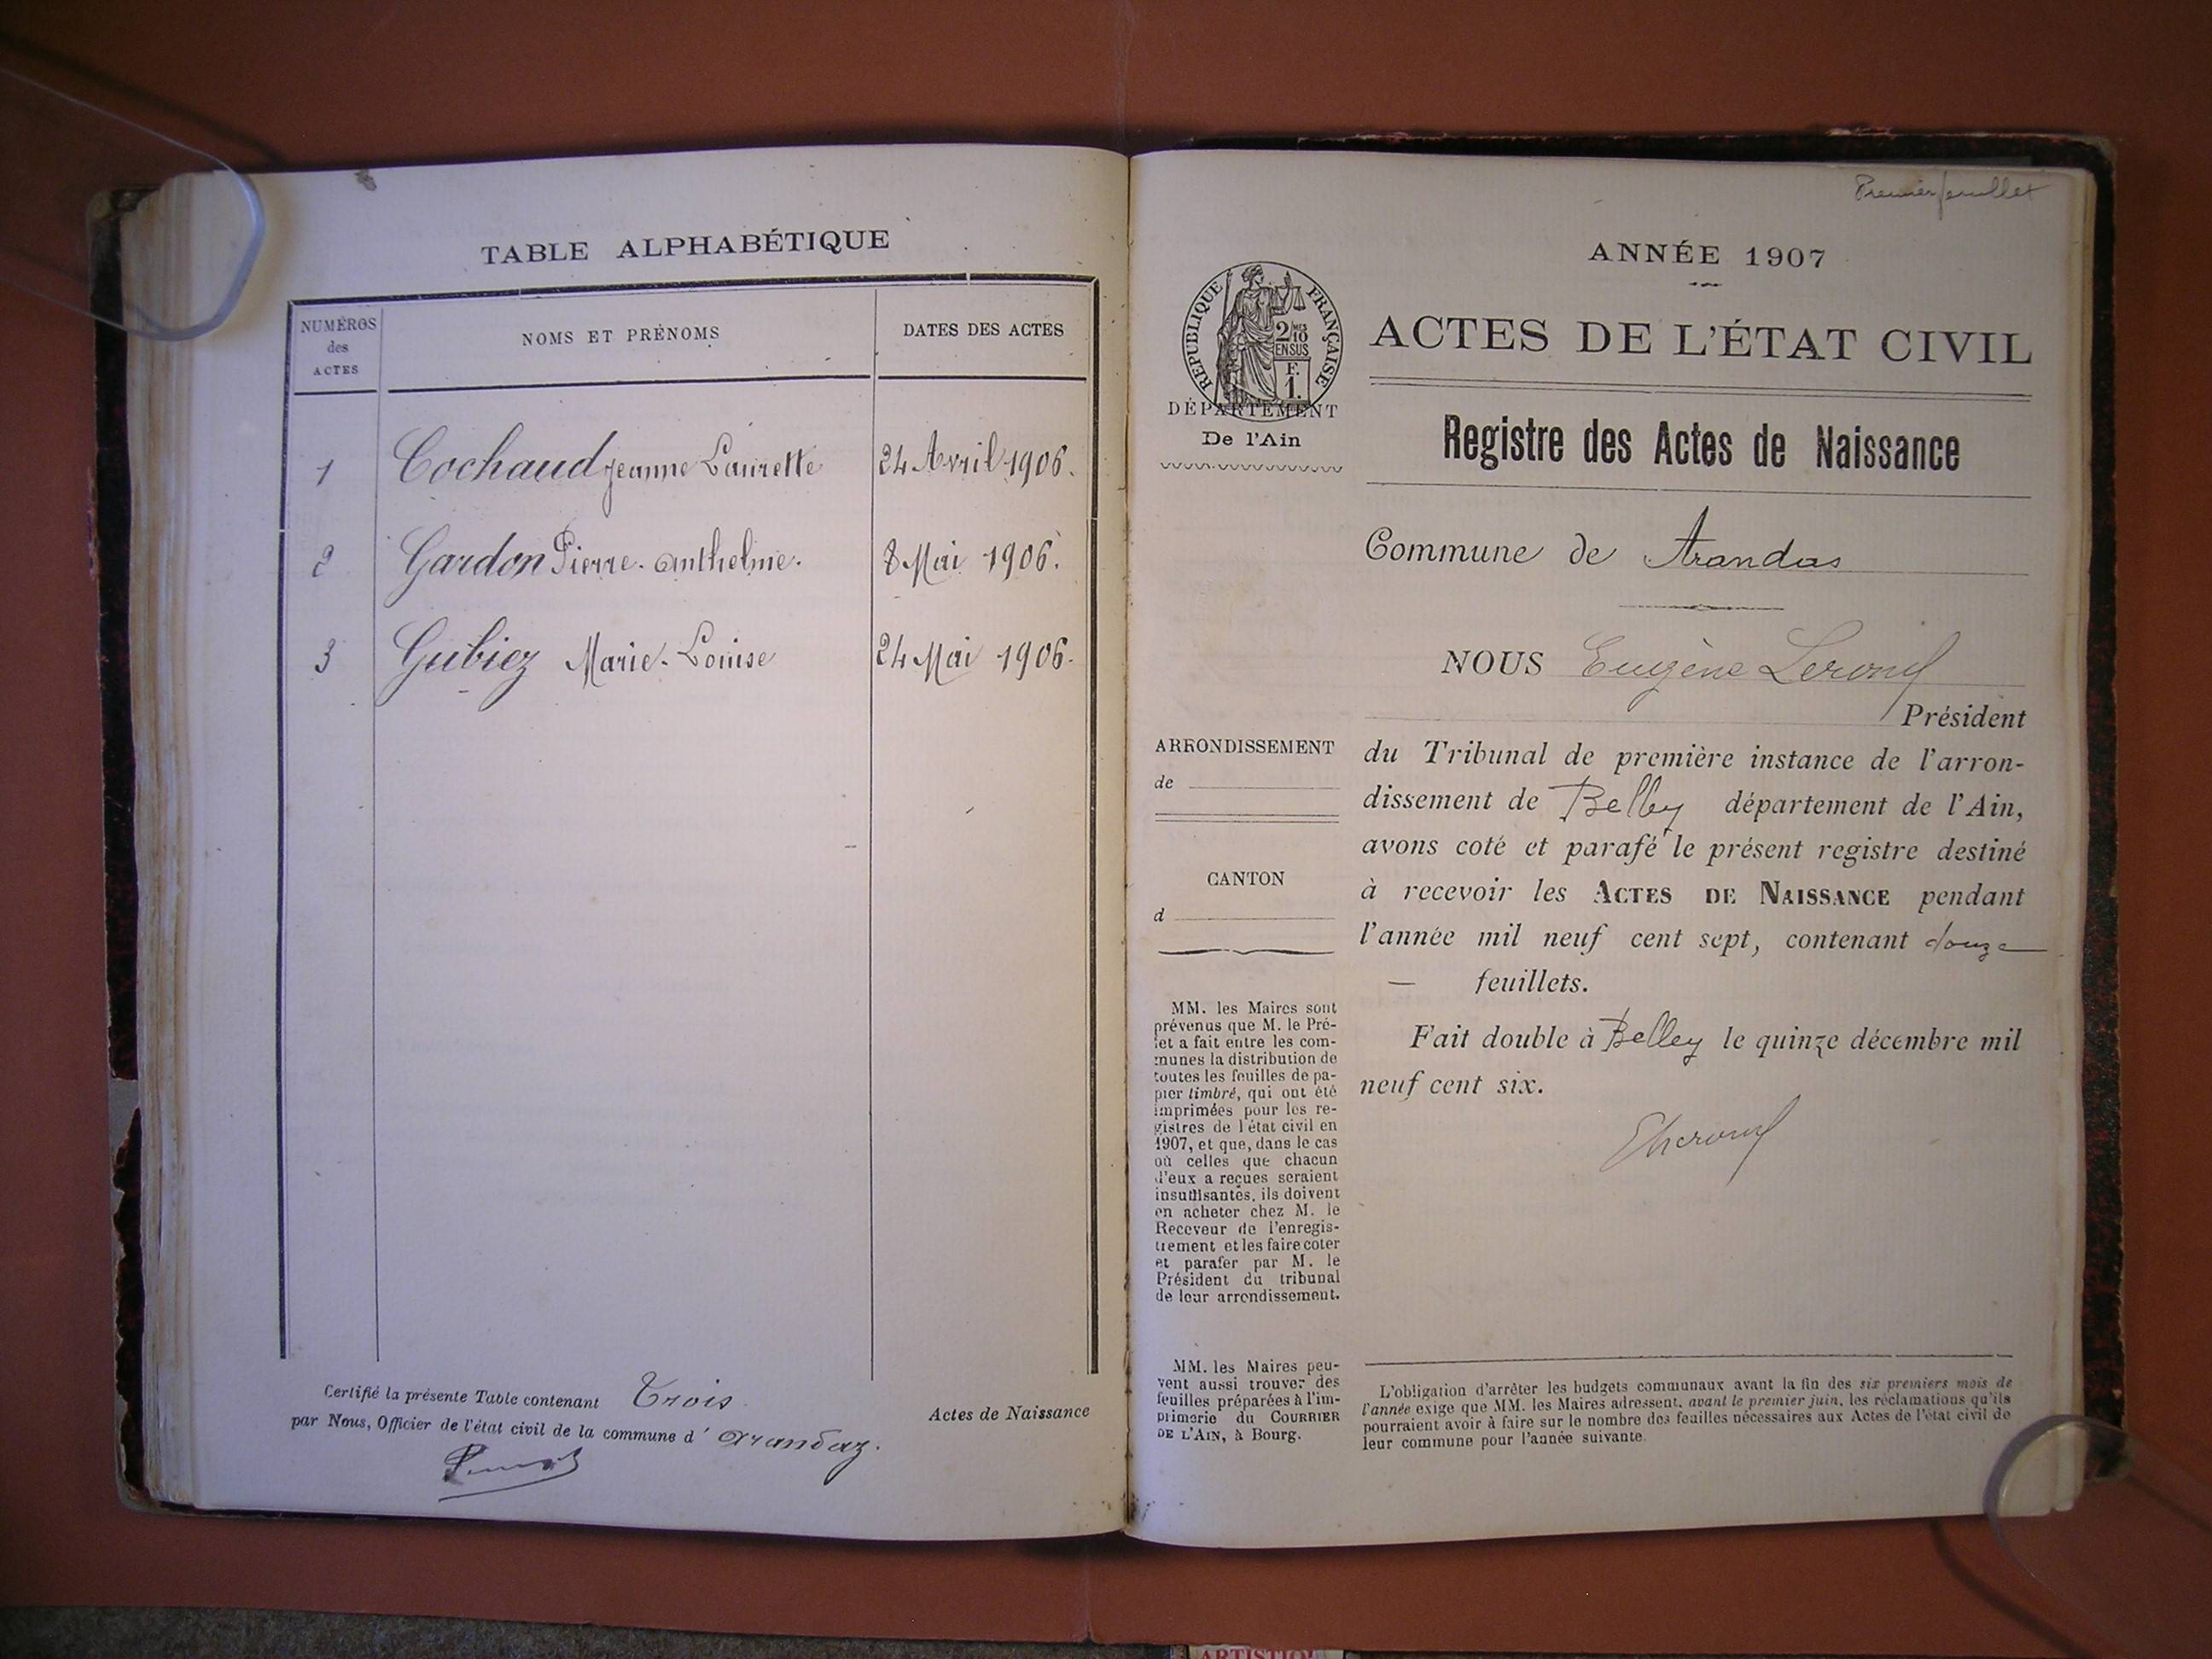 TABLE ALPHABÉTIQUE
NUMÉROS des ACTES
NOMS ET PRÉNOMS
DATES DES ACTES
1 Cochaud Jeanne Laurette 24 Avril 1906.
2 Gardon Pierre. Anthelme. 8 Mai 1906.
3 Gubiez Marie-Louise 24 Mai 1906.
Certifié la présente Table contenant Trois
par Nous, Officier de l'état civil de la commune d' Arandaz.
Actes de Naissance
Premier feuillet
ANNÉE 1907
RÉPUBLIQUE FRANÇAISE
2/10 MES
EN SUS
F.
1.
DÉPARTEMENT
De l'Ain
ACTES DE L'ÉTAT CIVIL
Registre des Actes de Naissance
Commune de Arandas
NOUS Eugène
Président
du Tribunal de première instance de l'arron-
dissement de Belley département de l'Ain,
avons coté et parafé le présent registre destiné
à recevoir les ACTES DE NAISSANCE pendant
l'année mil neuf cent sept, contenant douze
— feuillets.
Fait double à Belley le quinze décembre mil
neuf cent six.
ARRONDISSEMENT
de
CANTON
d
MM. les Maires sont
prévenus que M. le Pré-
fet a fait entre les com-
munes la distribution de
toutes les feuilles de pa-
pier timbré, qui ont été
imprimées pour les re-
gistres de l'état civil en
1907, et que, dans le cas
où celles que chacun
d'eux a reçues seraient
insuffisantes, ils doivent
en acheter chez M. le
Receveur de l'enregis-
trement et les faire coter
et parafer par M. le
Président du tribunal
de leur arrondissement.
MM. les Maires peu-
vent aussi trouver des
feuilles préparées à l'im-
primerie du COURRIER
DE L'AIN, à Bourg.
L'obligation d'arrêter les budgets communaux avant la fin des six premiers mois de
l'année exige que MM. les Maires adressent, avant le premier juin, les réclamations qu'ils
pourraient avoir à faire sur le nombre des feuilles nécessaires aux Actes de l'état civil de
leur commune pour l'année suivante.